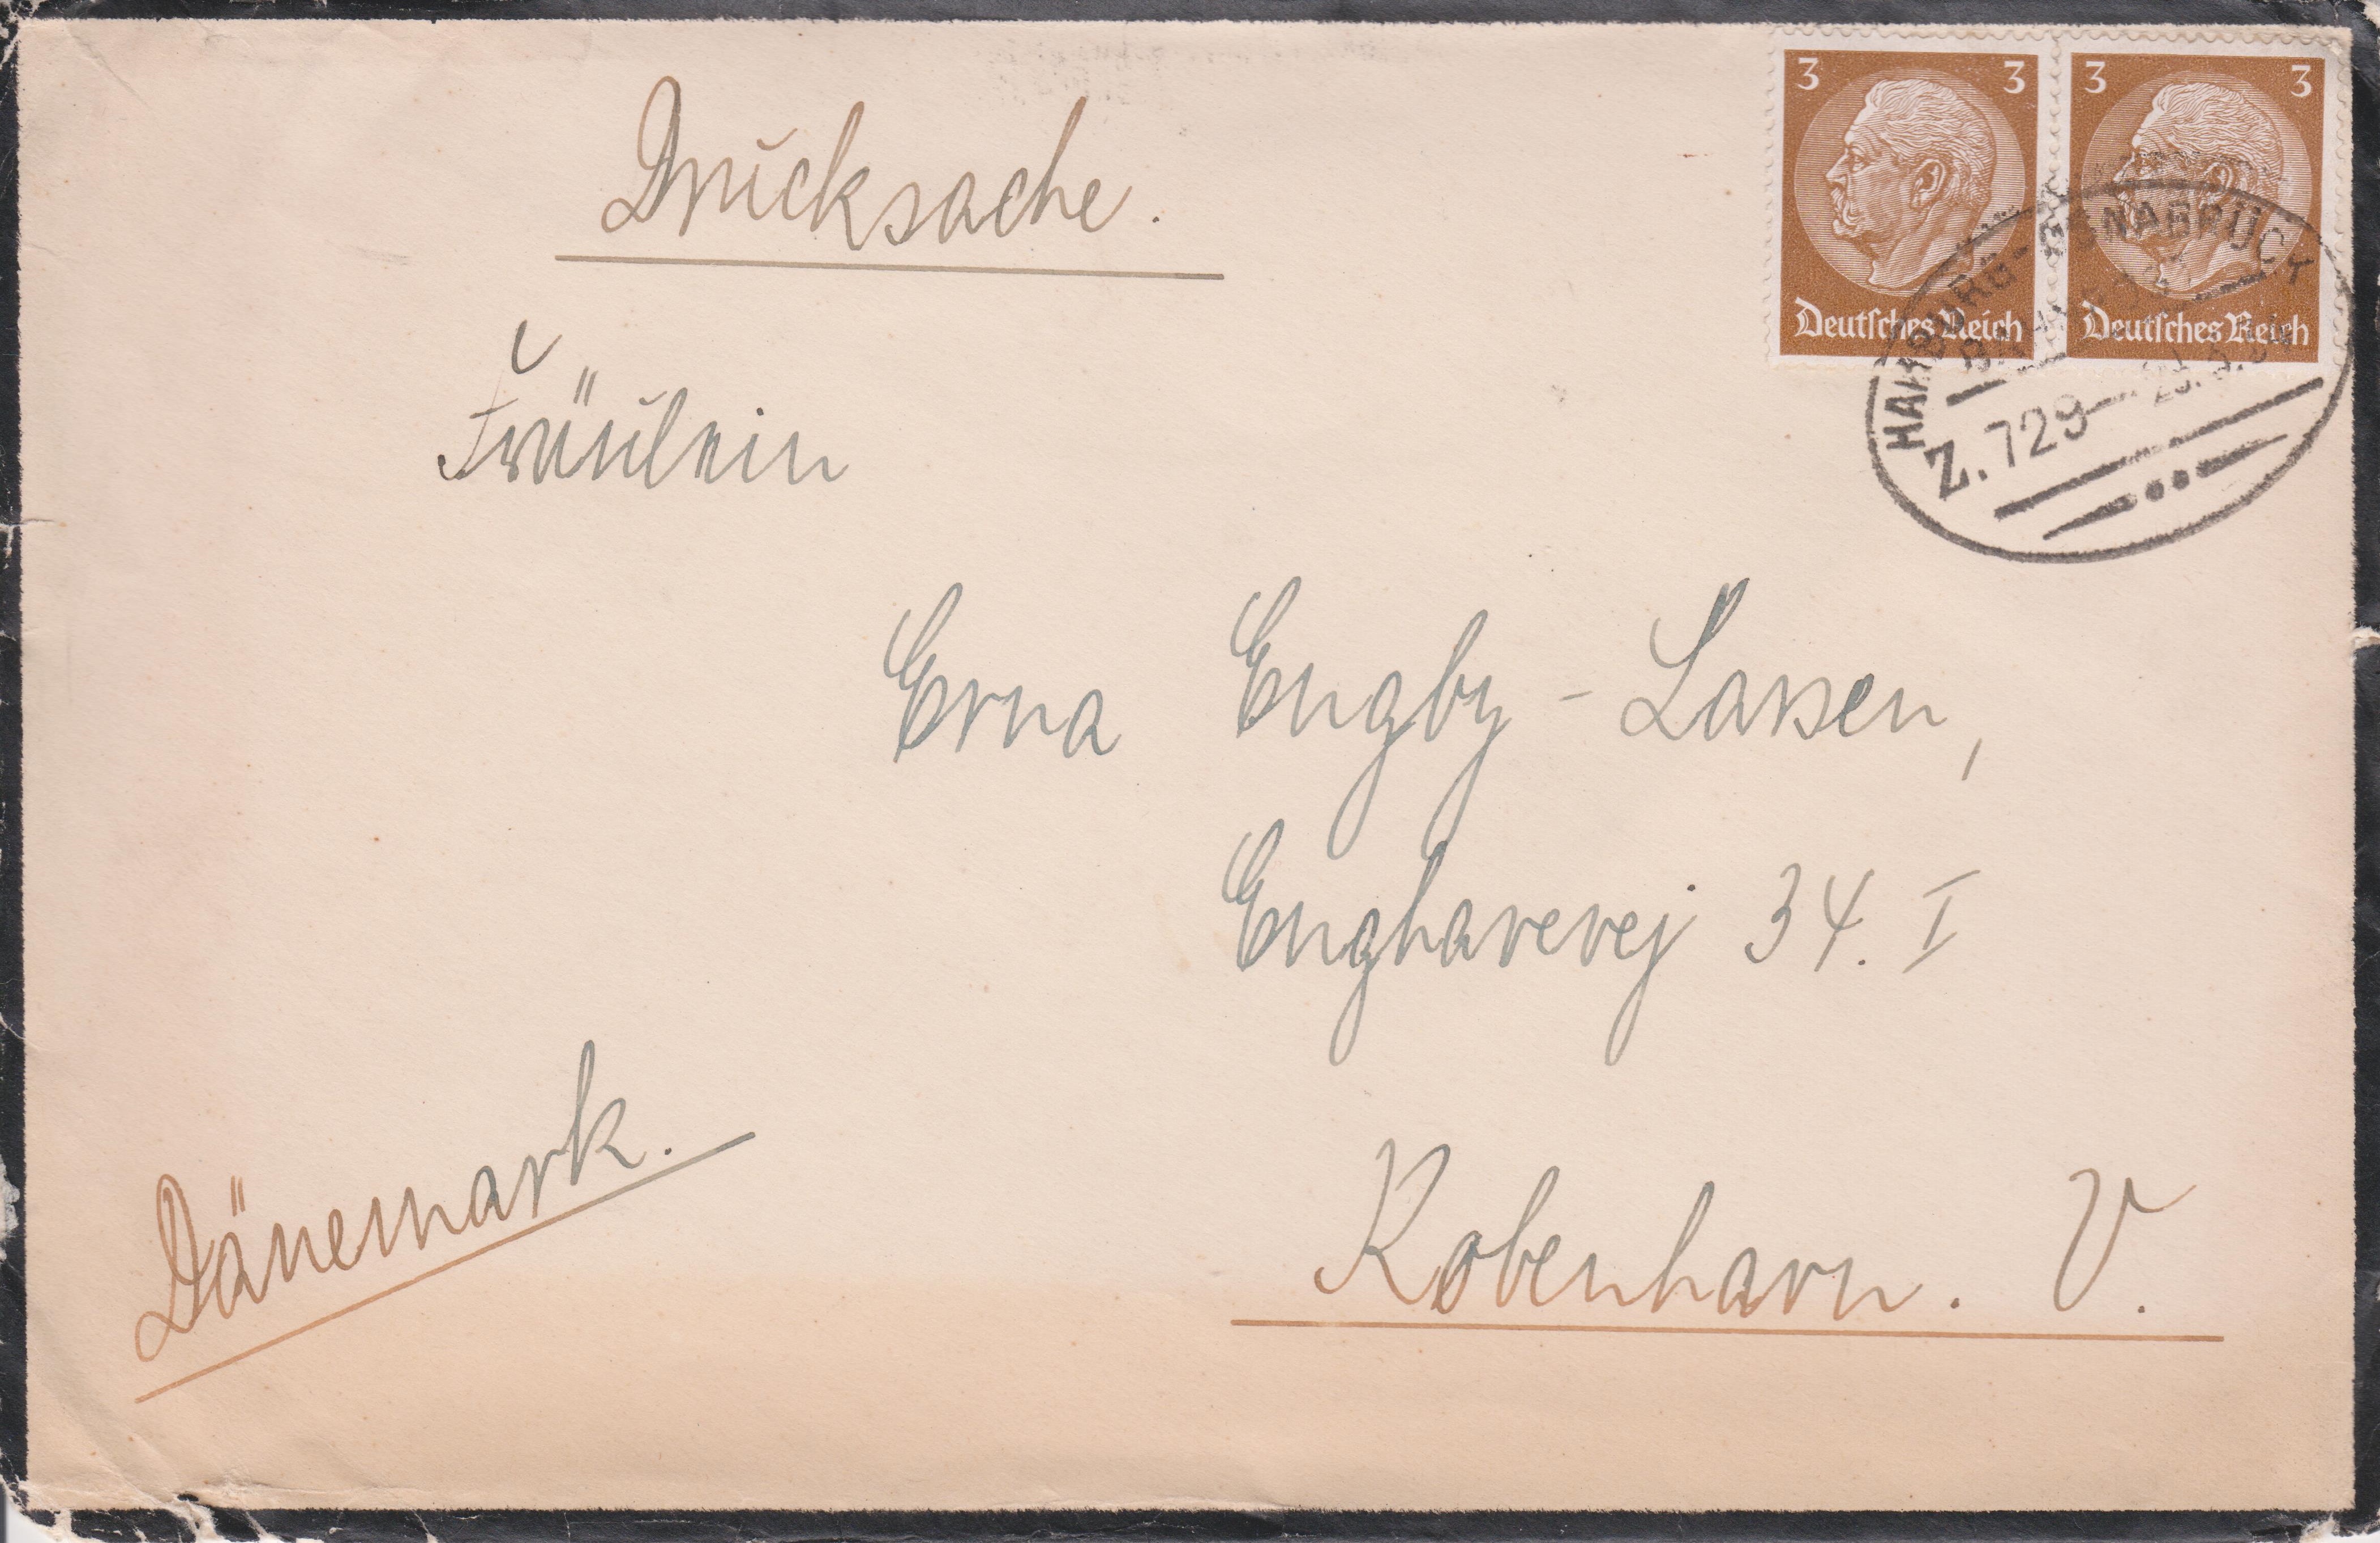 3 3 3 3
Drucksache.
Deutsches Reich Deutsches Reich
HAMBURG-OSNABRÜCK
BAHNPOST
Z. 729
Fräulein
Erna Engby-Larsen,
Enghavevej 34. I
København. V.
Dänemark.